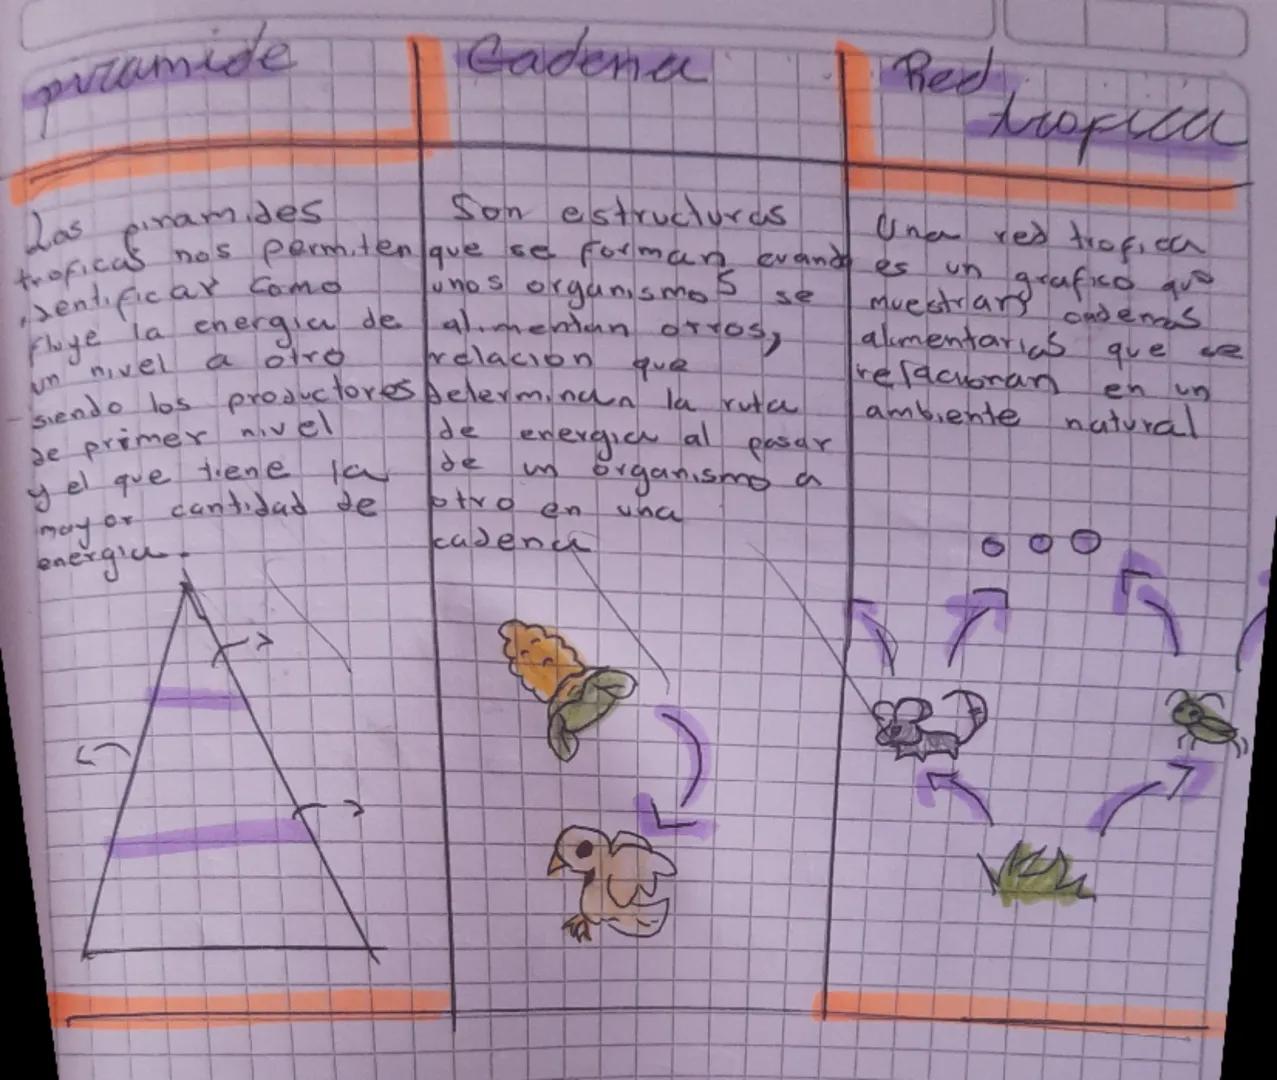 piramide
Las piramides
troficas nos permiten
identificar como
fluye la energia de
un nivel a otro
siendo los productores
de primer nivel
y el que tiene la
mayor cantidad de
energia.
Cadena
Son estructuras
que se forman cuando
unos organismos se
alimentan otros,
relacion que
determinan la ruta
de energia al pasar
de un organismo a
otro en una
cadena
Red
trofica
Una red trofica
es un grafico que
muestrars cadenas
alimentarias que se
relacionan en un
ambiente natural